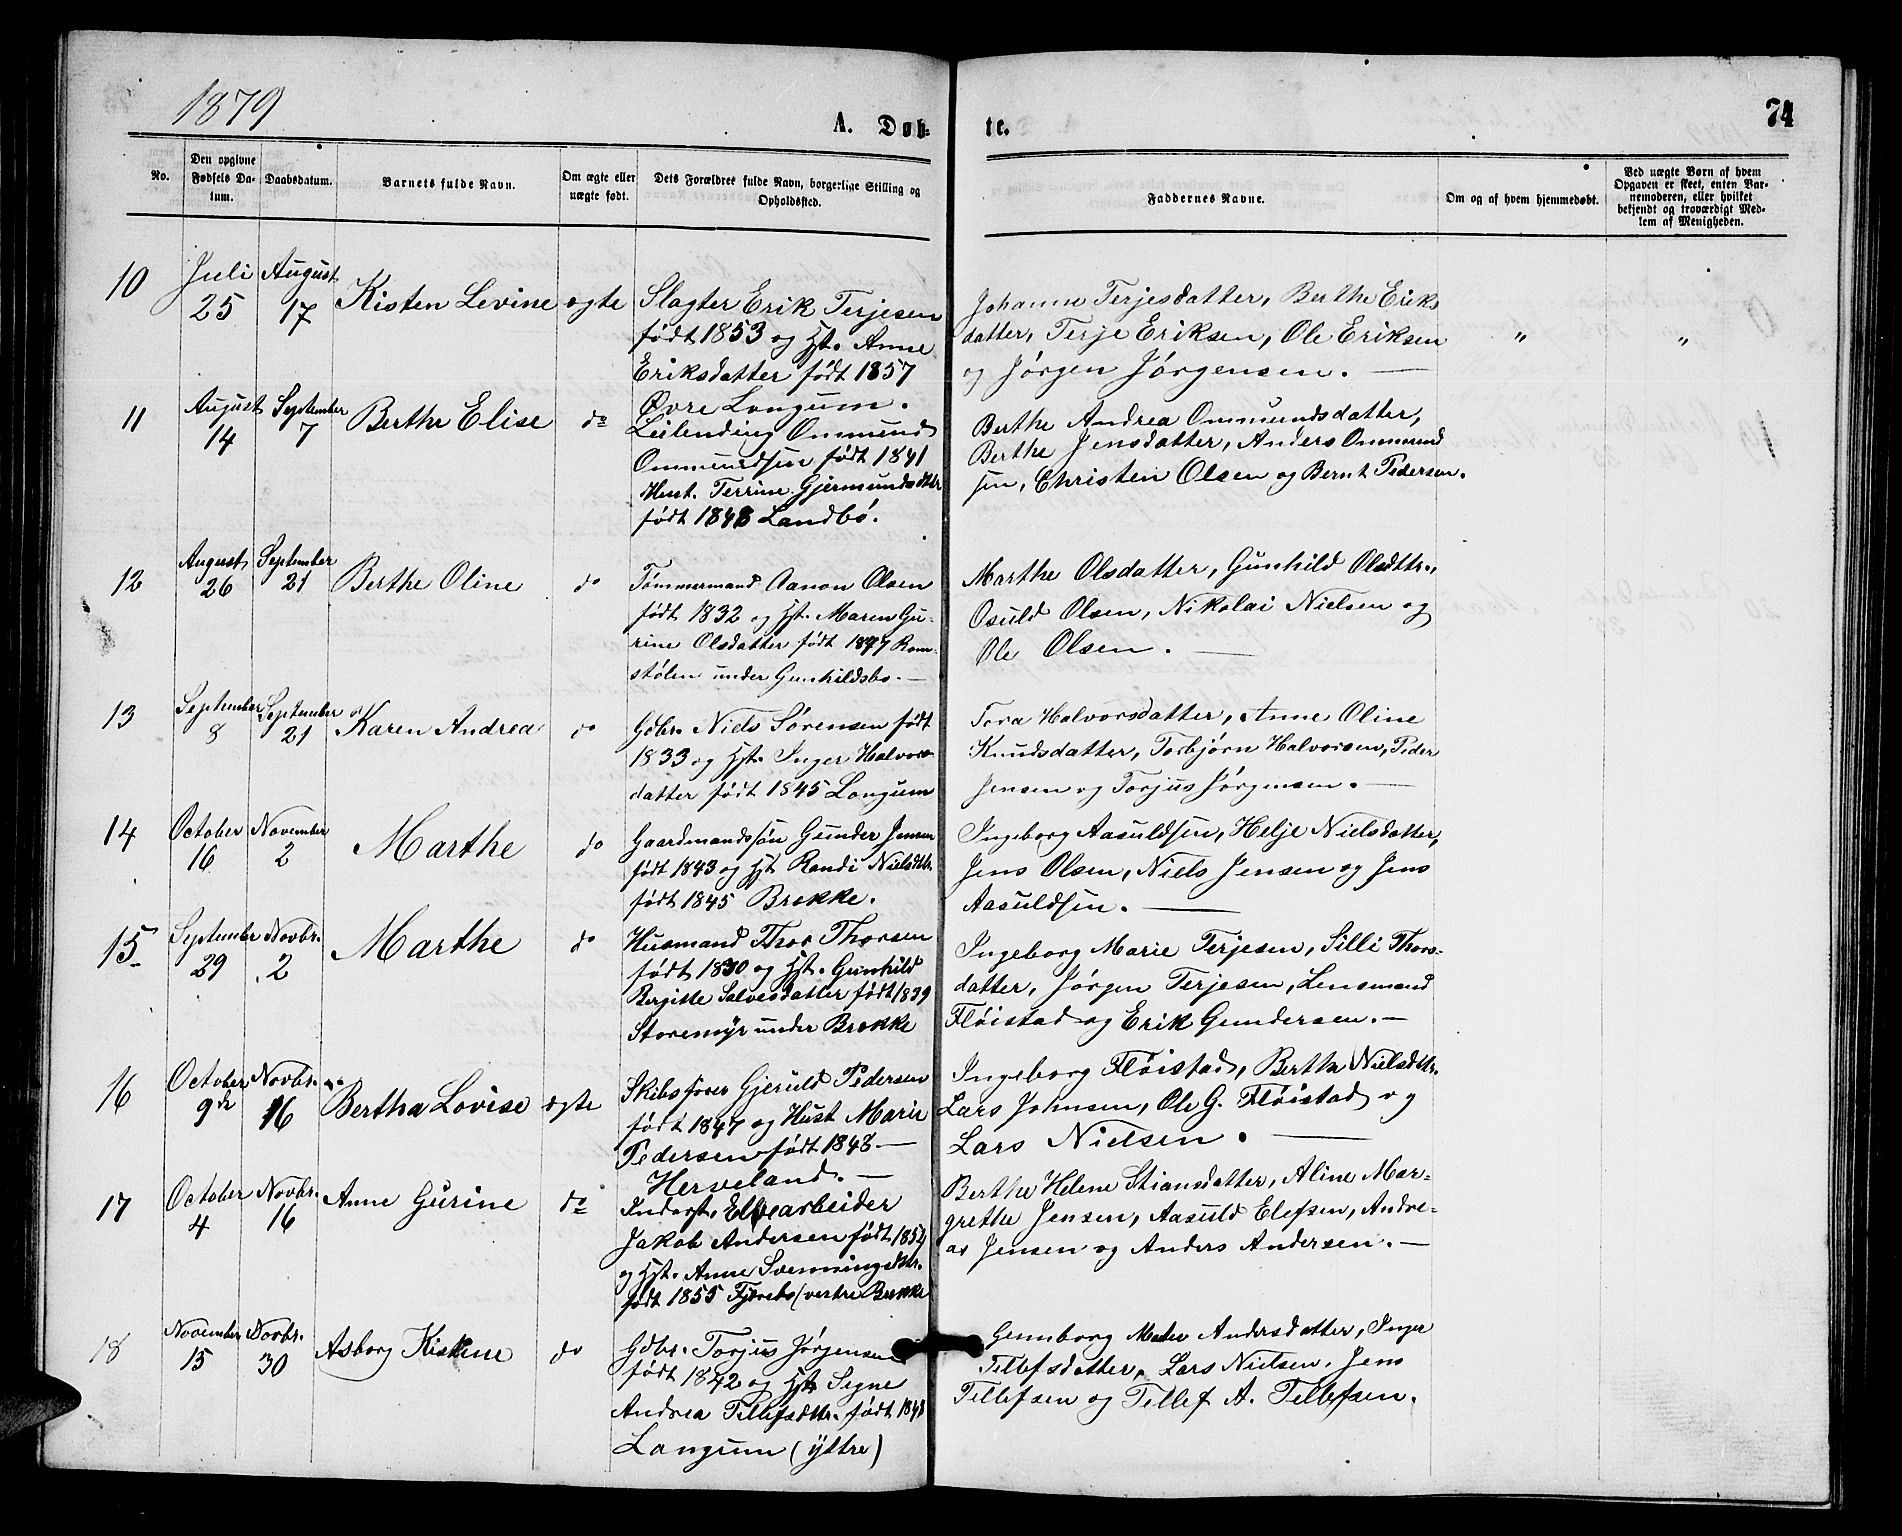 1879
A. Døb-
te.
74
No.
Den opgivne Fødsels Da-tum.
Daabsdatum.
Barnets fulde Navn.
Om ægte eller uægte født.
Dets Forældres fulde Navn, borgerlige Stilling og Opholdssted.
Faddernes Navne.
Om og af hvem hjemmedøbt.
Ved uægte Børn af hvem Opgaven er skeet, enten Bar-nemoderen, eller hvilket bekjendt og troværdigt Med-lem af Menigheden.
10
Juli 25
August 17
Kisten Levine
ægte
Slagter Erik Terjesen
født 1853 og Hst. Anne
Eriksdatter født 1857
Øvre Longum.
Johanne Terjesdatter, Berthe Eriks
datter, Terje Eriksen, Ole Eriksen
og Jørgen Jørgensen. —
"
"
11
August 14
September 7
Berthe Elise
do
Leilending Ommund
Ommundsen født 1841
Hust. Terrine Gjermundsdttr
født 1848 Landbø.
Berthe Andrea Ommundsdatter,
Berthe Jensdatter, Anders Ommund
sen, Christen Olsen og Bernt Pedersen.
12
August 26
September 21
Berthe Oline
do
Tømmermand Aanon Olsen
født 1832 og Hst. Maren Gu-
rine Olsdatter født 1847 Rom-
stølen under Gunhildsbo. —
Marthe Olsdatter, Gunhild Olsdttr.,
Osuld Olsen, Nikolai Nielsen og
Ole Olsen. —
13
September 8
September 21
Karen Andrea
do
Gdbr. Niels Sørensen født
1833 og Hst. Inger Halvors-
datter født 1845 Longum
Tora Halvorsdatter, Anne Oline
Knudsdatter, Torbjørn Halvorsen, Peder
Jensen og Torjus Jørgensen. —
14
October 16
November 2
Marthe
do
Gaardmandssøn Gunder Jensen
født 1843 og Hst Randi Nielsdtr.
født 1845 Brekke.
Ingeborg Aasuldsen, Helje Nielsdatter,
Jens Olsen, Niels Jensen og Jens
Aasuldsen. —
15
September 29
Novbr. 2
Marthe
do
Husmand Thor Thorsen
født 1830 og Hst. Gunhild
Bergitte Salvesdatter født 1839
Storemyr under Brekke
Ingeborg Marie Terjesen, Silli Thors-
datter, Jørgen Terjesen, Lensmand
Fløistad og Erik Gundersen. —
16
October 9de
Novbr. 16
Bertha Lovise
ægte
Skibsfører Gjeruld Pedersen
født 1847 og Hust Marie
Pedersen født 1848 —
Herveland. —
Ingeborg Fløistad, Berthe Nielsdttr.
Lars Johnsen, Ole G. Fløistad og
Lars Nielsen. —
17
October 4
Novbr. 16
Anne Gurine
do
Inderst, Elvearbeider
Jakob Andersen født 1854
og Hst. Anne Svenningsdttr.
født 1855 (vestre Brekke
Berthe Helene Stiansdatter, Aline Mar-
grethe Jensen, Aasuld Elefsen, Andre-
as Jensen og Anders Andersen. —
18
November 15
Novbr. 30
Asborg Kistine
do
Gdbr. Torjus Jørgensen
født 1842 og Hst Signe
Andrea Tellefsdttr. født 1848
Langum (ytre)
Gunborg Andersdatter, Inger
Tellefsdatter, Lars Nielsen, Jens
Tellefsen og Tellef A. Tellefsen.